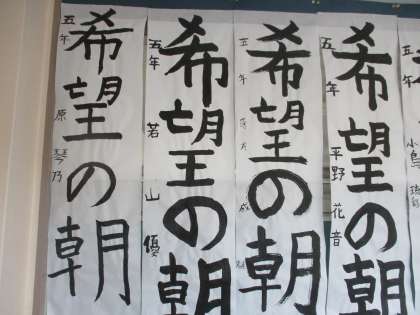 希望の朝
五年 原 琴乃
希望の朝
五年 若山 優
希望の朝
五年
希望の朝
五年 平野 花音
小鳥